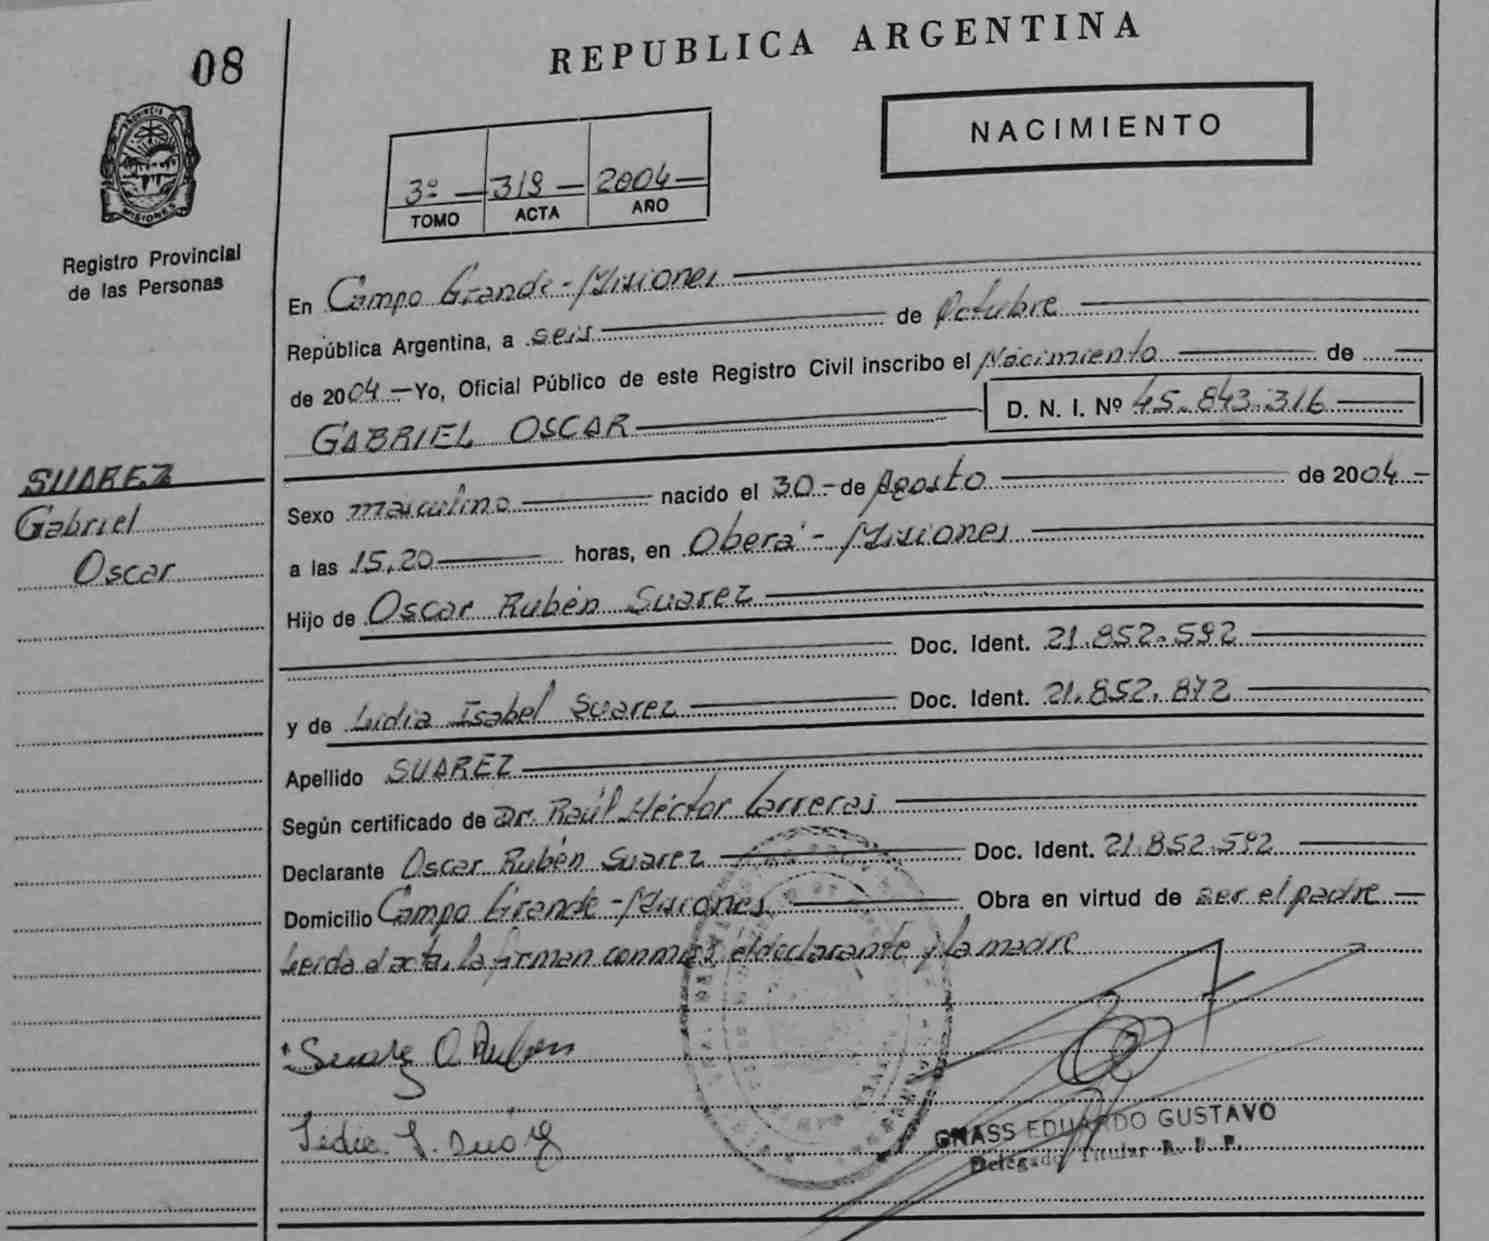 08
REPUBLICA ARGENTINA
NACIMIENTO
3º — 318 — 2004 —
TOMO ACTA AÑO
PROVINCIA DE
MISIONES
Registro Provincial
de las Personas
En Campo Grande - Misiones
República Argentina, a seis de Octubre
de 2004.- Yo, Oficial Público de este Registro Civil inscribo el Nacimiento de
GABRIEL OSCAR D. N. I. Nº 45.843.316
SUAREZ
Gabriel
Oscar
Sexo masculino nacido el 30.- de Agosto de 2004.-
a las 15,20 horas, en Oberá - Misiones
Hijo de Oscar Rubén Suarez
Doc. Ident. 21.852.592
y de Lidia Isabel Suarez Doc. Ident. 21.852.872
Apellido SUAREZ
Según certificado de Dr. Raúl Héctor Carreras
Declarante Oscar Rubén Suarez Doc. Ident. 21.852.592
Domicilio Campo Grande - Misiones Obra en virtud de ser el padre
Leída el acta, la firman conmigo el declarante y la madre
Suarez O. Ruben
GNASS EDUARDO GUSTAVO
Delegado Titular R. P. P.